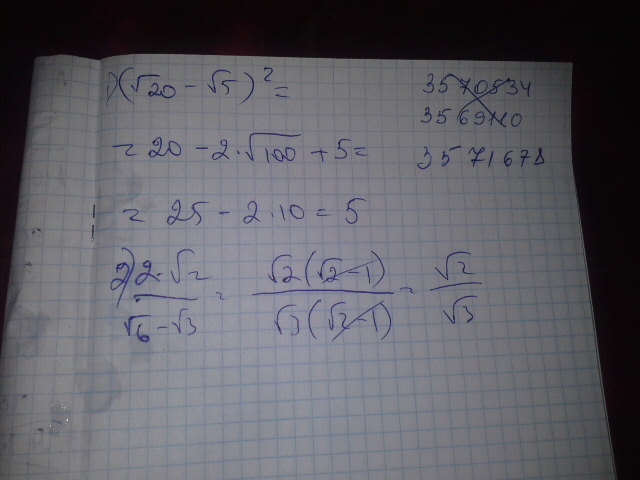 1) (√20 - √5)² =
= 20 - 2·√100 + 5 =
= 25 - 2·10 = 5
2) (2-√2)/(√6-√3) = (√2(√2-1))/(√3(√2-1)) = √2/√3
3570534
3569110
3571678